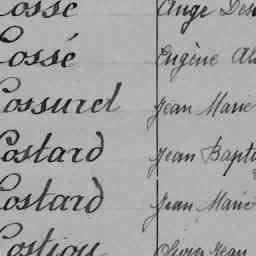 Cossé Ange Dés
Cossé Eugène Al
Cossuret Jean Marie
Costard Jean Bapti
Costard Jean Marie
Costiou Jean